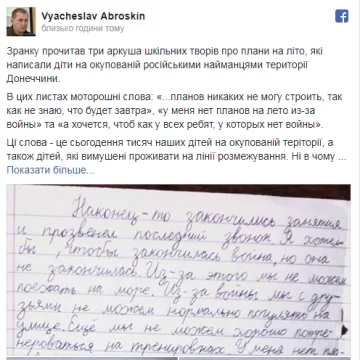 Vyacheslav Abroskin
близько години тому
Зранку прочитав три аркуша шкільних творів про плани на літо, які
написали діти на окупованій російськими найманцями території
Донеччини.
В цих листах моторошні слова: «...планов никаких не могу строить, так
как не знаю, что будет завтра», «у меня нет планов на лето из-за
войны» та «а хочется, чтоб как у всех ребят, у которых нет войны».
Ці слова - це сьогодення тисяч наших дітей на окупованій теріторії, а
також дітей, які вимушені проживати на лінії розмежування. Ні в чому ...
Показати більше...
Наконец-то закончились занятия
и прозвенел последний звонок. Я хотел
бы, чтобы закончилась война, но она
не закончилась. Из-за этого мы не можем
поехать на море. Из-за войны мы с дру-
зьями не можем нормально погулять на
улице. Ещё мы не можем хорошо потре-
нероваться на тренировках. У меня нет пла-